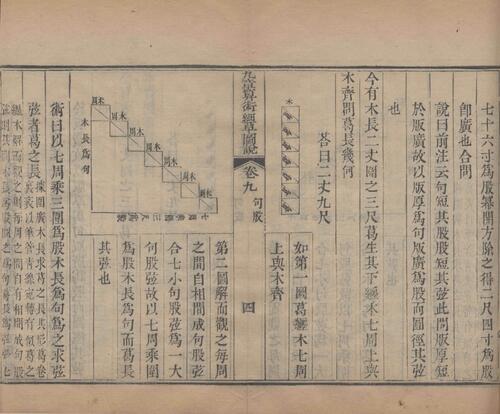 七十六寸爲股冪開方除之得二尺四寸爲股
卽廣也合問
說曰前注云句短其股股短其弦此問版厚短
於版廣故以版厚爲句版廣爲股而圓徑其弦
也
今有木長二丈圍之三尺葛生其下纏木七周上與
木齊問葛長幾何
荅曰二丈九尺
木
如第一圖葛纏木七周
上與木齊
九章算術細草圖說 卷九 句股 四
木周
木周
木周
木周
木周
木周
木周
木長爲句
第二圖解而觀之每周
之間自相間成句股弦
合七小句股弦爲一大
句股弦故以七周乘圍
爲股木長爲句而葛長
其弦也
術曰以七周乘三圍爲股木長爲句爲之求弦
弦者葛之長